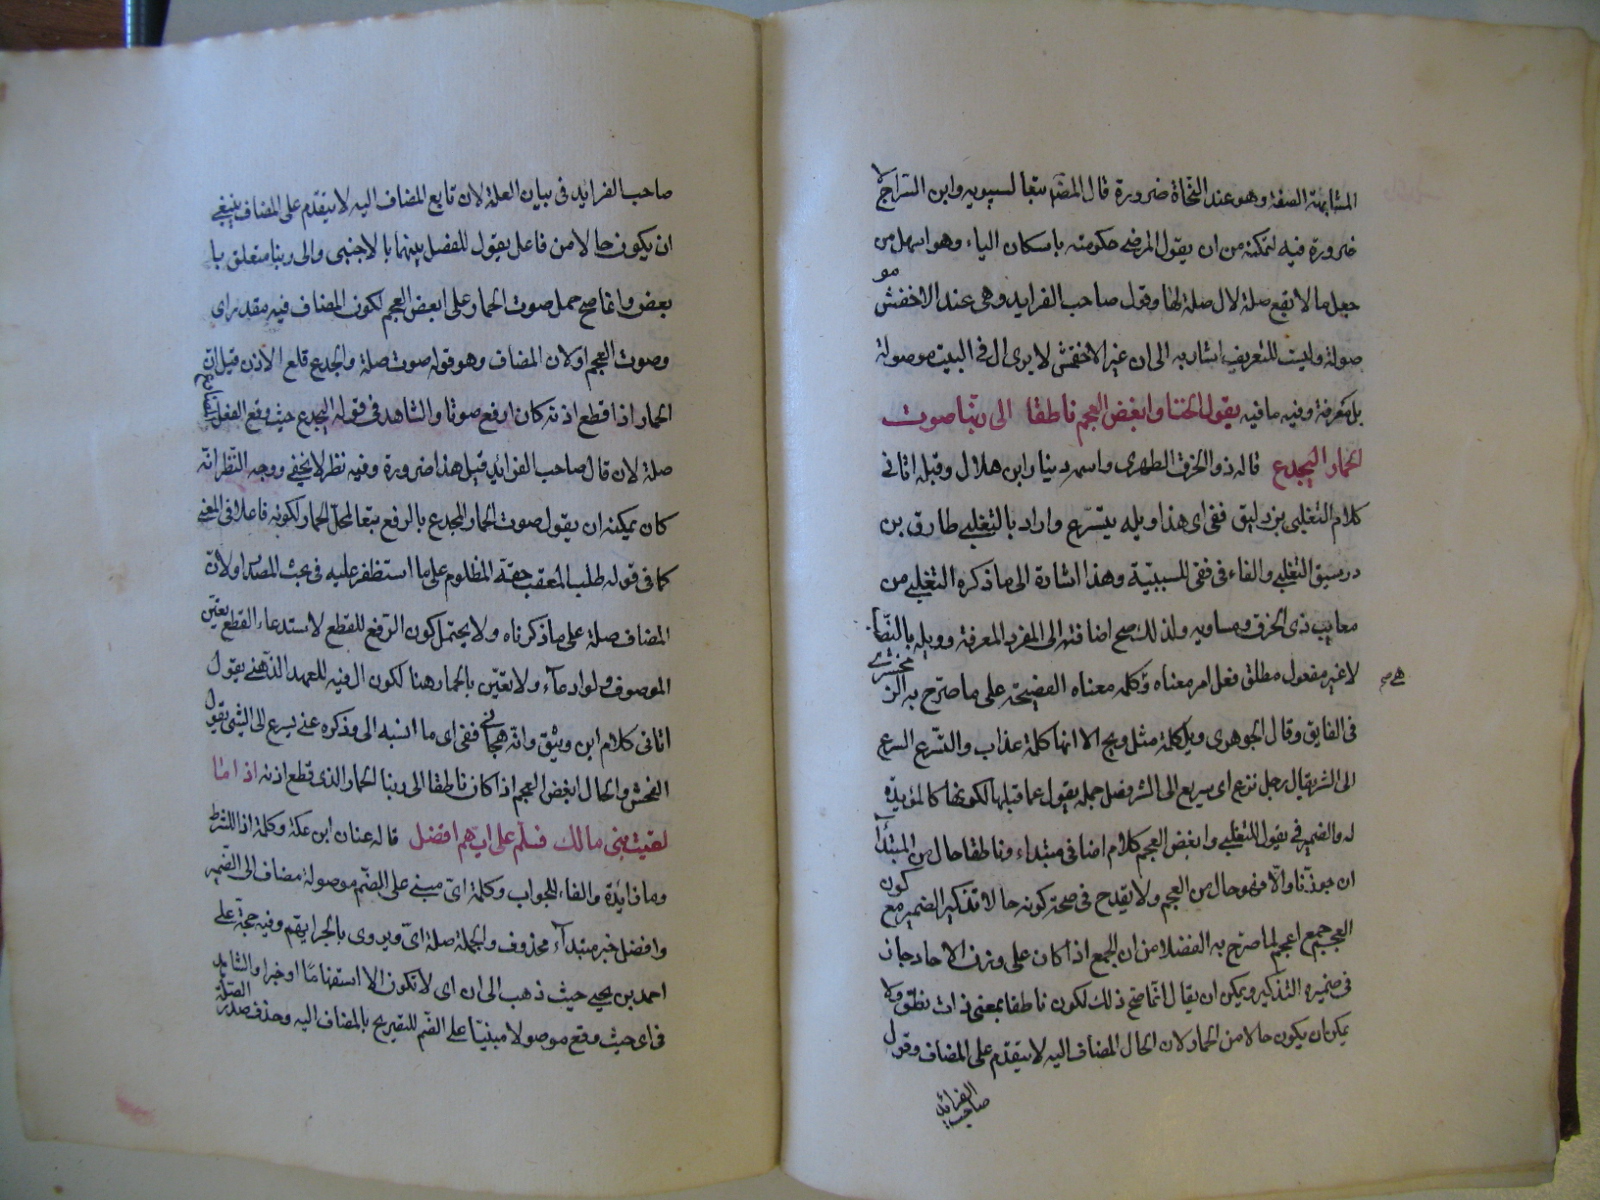 المشابهة الصفة وهو عند النحاة ضرورة قال المصنف تبعا لسيبويه وابن السراج لا
ضرورة فيه لتمكنه من ان يقول المرضي حكومته باسكان الياء وهو اسهل من
جعل ما لا يقع صلة لال صلة لها وقول صاحب الفرايد وهي عند الاخفش مو
صولة وليست للتعريف اشار به الى ان غير الاخفش لا يرى ال في البيت موصولة
بل معرفة وفيه ما فيه يقول الخنا وابغض العجم ناطقا الى ربنا صوت
الحمار اليجدع قاله ذو الخرق الطهوى واسمه دينار ابن هلال وقبله اتاني
كلام التغلبي بن ديسق ففى اى هذا ويله يتسرع واراد بالتغلبي طارق بن
ديسق التغلبي والفاء في ففى للسببية وهذا اشارة الى ما ذكره التغلبي من
معايب ذى الخرق ومساويه ولذلك صح اضافته الى المفرد المعرفة وويله بالنصب
لا غير مفعول مطلق فعل امر معناه وكلمه معناه الفضيحة على ما صرح به الزمخشرى
في الفايق وقال الجوهرى ويل كلمة مثل ويح الا انها كلمة عذاب والتسرع السرع
الى الشر يقال رجل نزع اى سريع الى الشر وفصل جملة يقول عما قبلها لكونها كالمؤيدة
له والضمير في يقول للتغلبي وابغض العجم كلام اضافى مبتداء وناطقا حال من المبتدأ
ان جوزنا والا فهو حال من العجم ولا يقدح في صحة كونه حالا تذكير الضمير مع كون
العجم جمع اعجم لما صرح به الفضلا من ان الجمع اذا كان على وزن الاحاد جاز
في ضميره التذكير ويمكن ان يقال انما صح ذلك لكون ناطقا بمعنى ذات نطق ولا
يمكن ان يكون حالا من الحمار لان الحال المضاف اليه لا يتقدم على المضاف وقول
صاحب الفرائد
صاحب الفرايد في بيان العلة لان تابع المضاف اليه لا يتقدم على المضاف ينبغي
ان يكون حالا من فاعل يقول للفصل بينهما بالاجنبى والى ربنا متعلق با
بغض وانما صح حمل صوت الحمار على ابغض العجم لكون المضاف فيه مقدر اى
وصوت العجم اولان المضاف وهو قوله صوت صلة والجدع قلع الاذن قيل ان
الحمار اذا قطع اذنه كان ارفع صوتا والشاهد في قوله اليجدع حيث وقع الفعل المضارع
صلة لان قال صاحب الفرايد قيل هذا ضرورة وفيه نظر لا يخفى ووجه النظر انه
كان يمكنه ان يقول صوت الحمار المجدع بالرفع تبعا لمحل الحمار لكونه فاعلا في المعنى
كما في قوله طلب المعقب حقه المظلوم على ما استظفر عليه في بحث المصدر اولان
المضاف صلة على ما ذكرناه ولا يحتمل كون الرفع للقطع لاستدعاء القطع تعين
الموصوف ولو ادعاء ولا تعين بالحمار هنا لكون ال فيه للعهد الذهني يقول
اتاني كلام ابن ديسق وانه هجاني ففى اى ما انسبه الى وذكره عنى يسرع الى الشئ يقول
الفحش والحال ابغض العجم اذا كان ناطقا الى ربنا الحمار الذى قطع اذنه اذا ما
لقيت بنى مالك فسلم على ايهم افضل قاله عنان ابن علة وكلمة اذا للشرط
وما زايدة والفاء للجواب وكلمة اىّ مبنى على الضم موصولة مضاف الى الضمير
وافضل خبر مبتداء محذوف والجملة صلة اىّ ويروى بالجر ايهم وفيه حجة على
احمد بن يحيى حيث ذهب الى ان اى لا تكون الا استفهاما او خبرا والشاهد
في اى حيث وقع موصولا مبنيا على الضم للتصريح بالمضاف اليه وحذف صدر الصلة